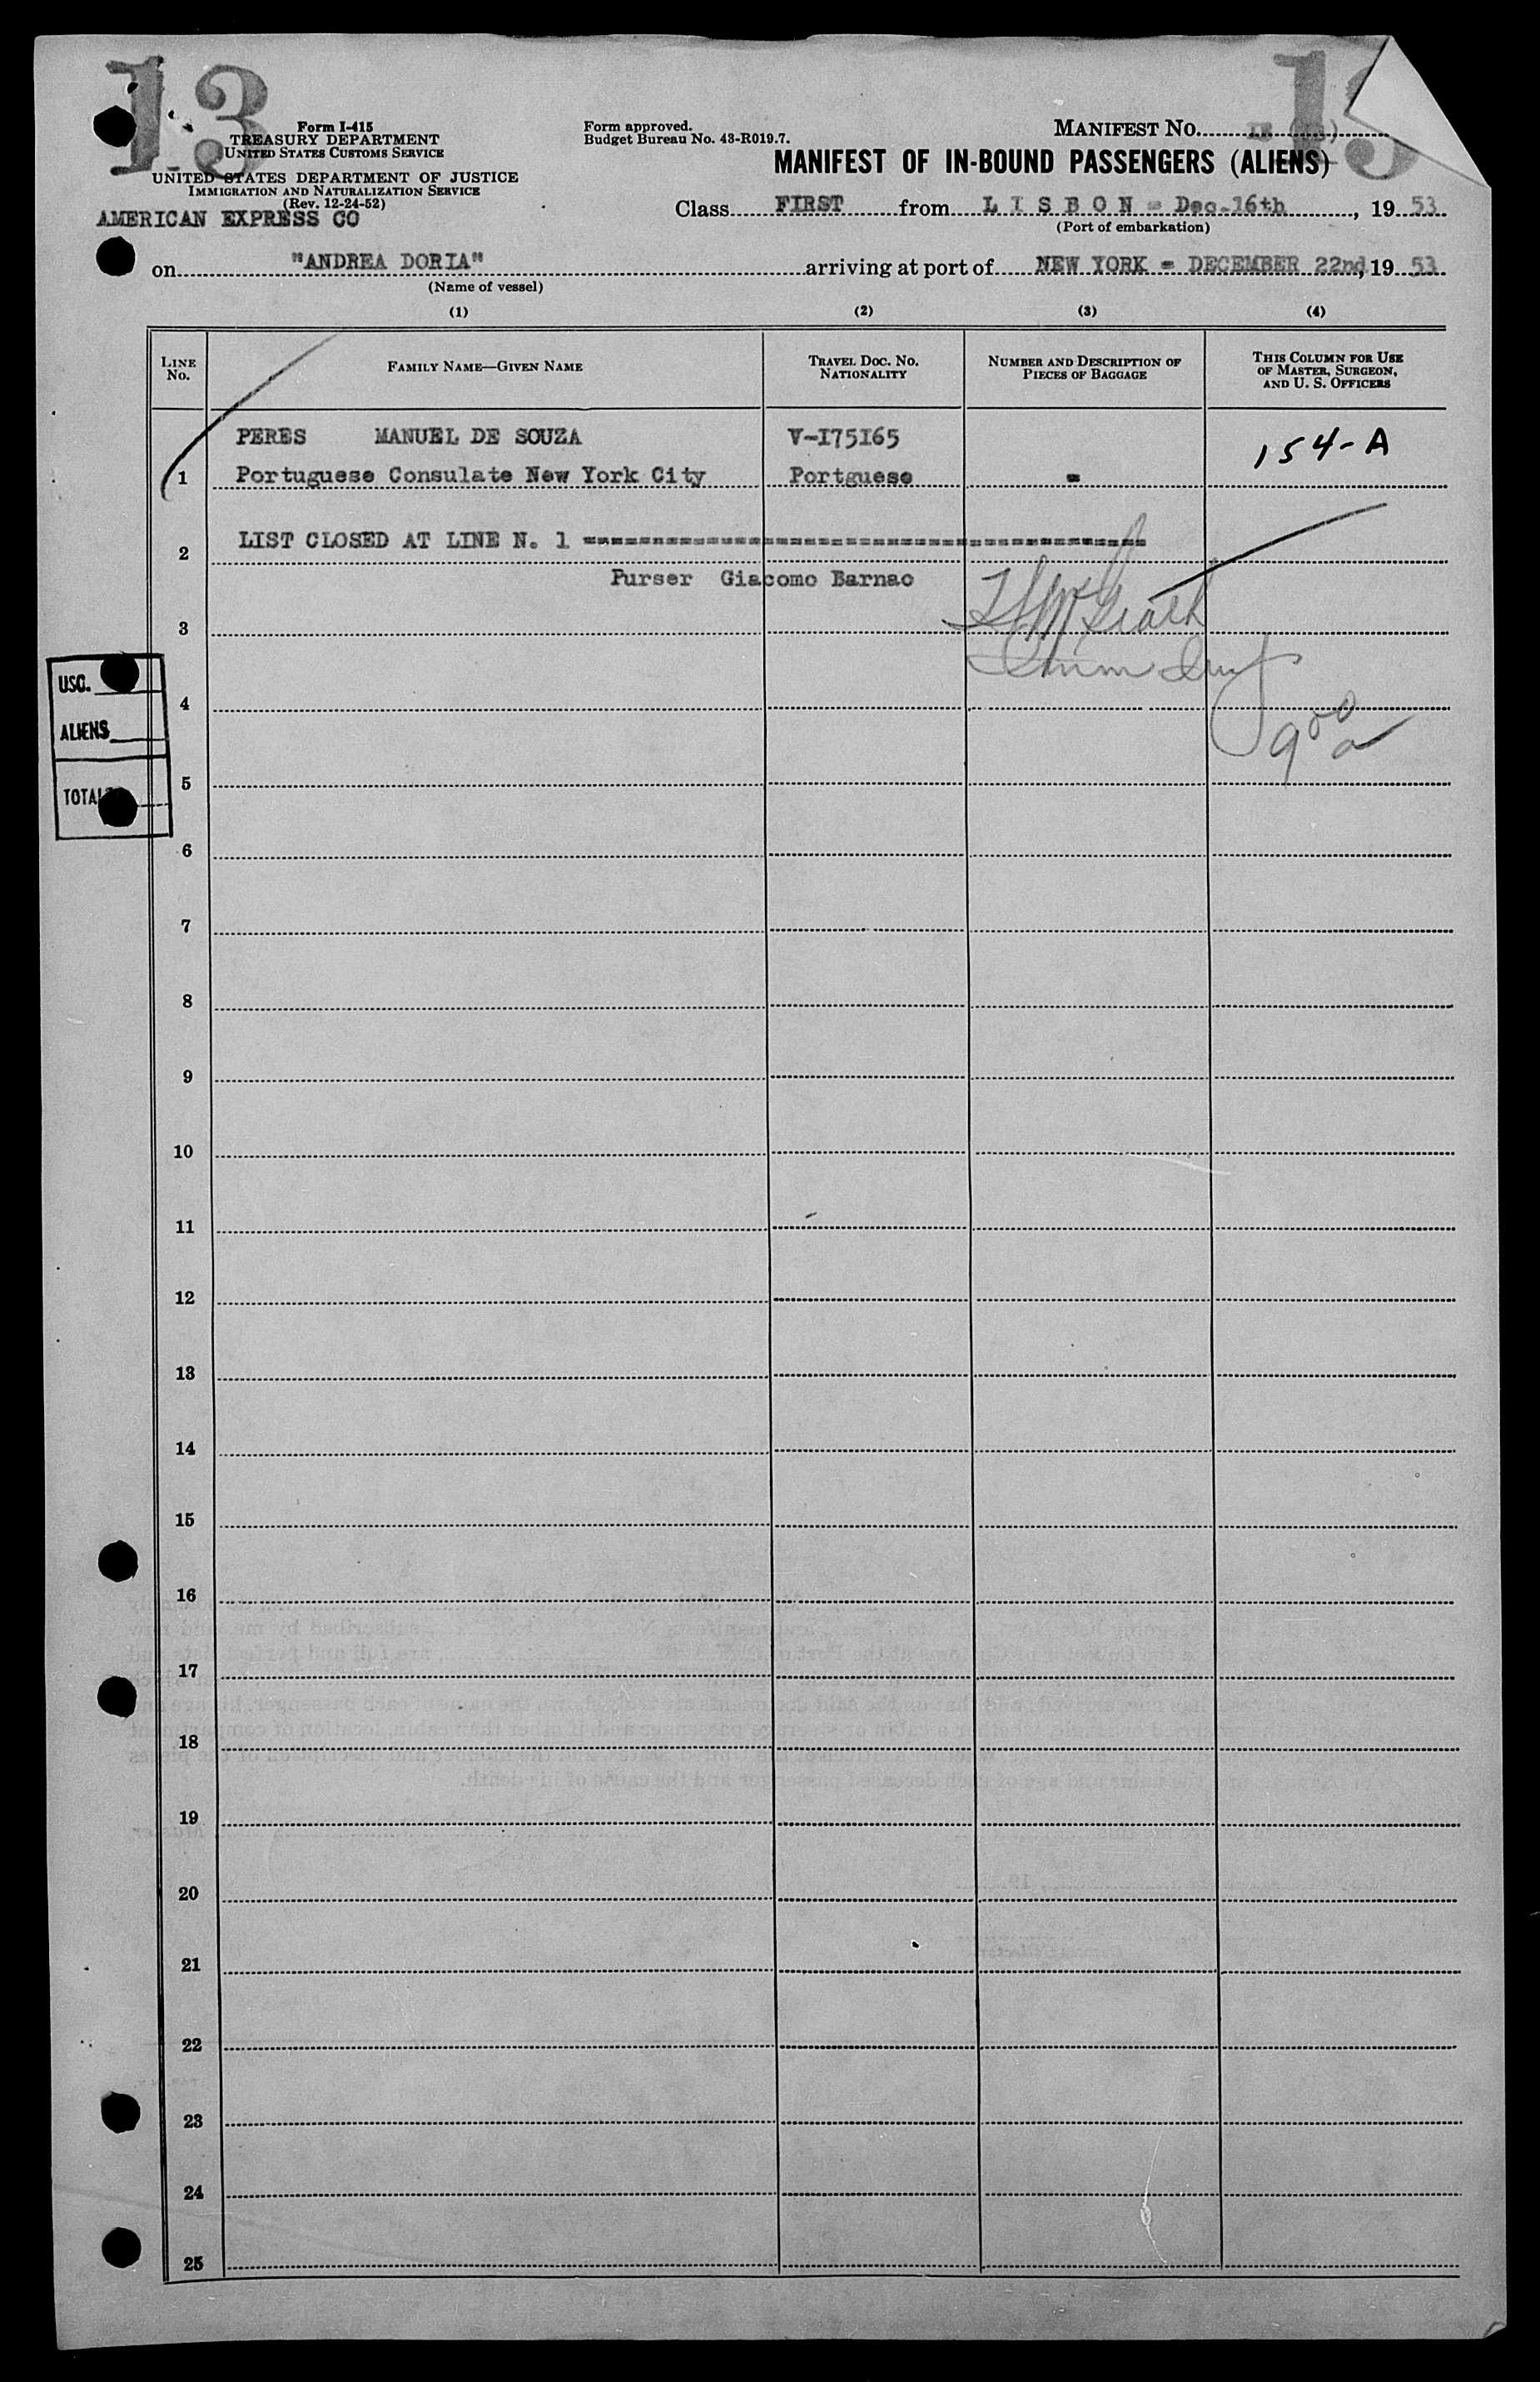 13
13
Form I-415
TREASURY DEPARTMENT
UNITED STATES CUSTOMS SERVICE
UNITED STATES DEPARTMENT OF JUSTICE
IMMIGRATION AND NATURALIZATION SERVICE
(Rev. 12-24-52)
AMERICAN EXPRESS CO
Form approved.
Budget Bureau No. 43-R019.7.
MANIFEST NO.
MANIFEST OF IN-BOUND PASSENGERS (ALIENS)
Class FIRST from L I S B O N - Dec.16th, 19 53
(Port of embarkation)
on "ANDREA DORIA" arriving at port of NEW YORK - DECEMBER 22nd, 19 53
(Name of vessel)
(1) (2) (3) (4)
LINE No. FAMILY NAME—GIVEN NAME TRAVEL DOC. NO. NATIONALITY NUMBER AND DESCRIPTION OF PIECES OF BAGGAGE THIS COLUMN FOR USE OF MASTER, SURGEON, AND U. S. OFFICERS
PERES MANUEL DE SOUZA V-I75I65 154-A
1 Portuguese Consulate New York City Portguese -
2 LIST CLOSED AT LINE N. 1 ----------------------------------------
Purser Giacomo Barnao
3
4
USC.
ALIENS
TOTAL
5
6
7
8
9
10
11
12
13
14
15
16
17
18
19
20
21
22
23
24
25